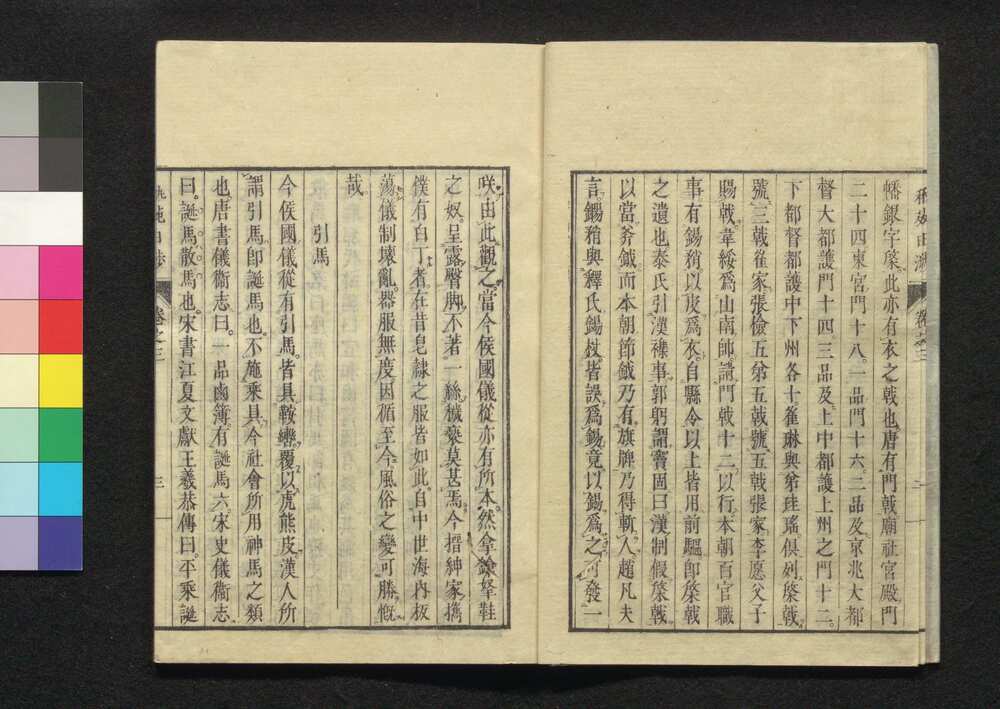 幡銀字棨此亦有衣之戟也唐有門戟廟社宮殿門
二十四東宮門十八一品門十六二品及京兆大都
督大都護門十四三品及上中都護上州之門十二
下都督都護中下州各十崔琳與弟珪瑤俱列棨戟
號三戟崔家張儉五弟五戟號五戟張家李愿父子
賜戟韋綬爲山南帥請門戟十二以行本朝百官職
事有錫矟以皮爲衣自縣令以上皆用前驅卽棨戟
之遺也泰氏引漢襍事郭躬謂竇固曰漢制假棨戟
以當斧鉞而本朝節鉞乃有旗牌乃得斬人趙凡夫
言錫矟與釋氏錫杖皆誤爲錫竟以錫爲之可發一
卷之三
咲由此觀之當今侯國儀從亦有所本然拿鎗拏鞋
之奴呈露臀脚不著一絲穢褻莫甚焉今搢紳家攜
僕有白丁者在昔皂隸之服皆如此自中世海內板
蕩儀制壞亂器服無度因循至今風俗之變可勝慨
哉
引馬
今侯國儀從有引馬皆具鞍轡覆以虎熊皮漢人所
謂引馬卽誕馬也不施乘具今社會所用神馬之類
也唐書儀衞志曰一品鹵簿有誕馬六宋史儀衞志
曰誕馬散馬也宋書江夏文獻王義恭傳曰平乘誕
卷之三
三